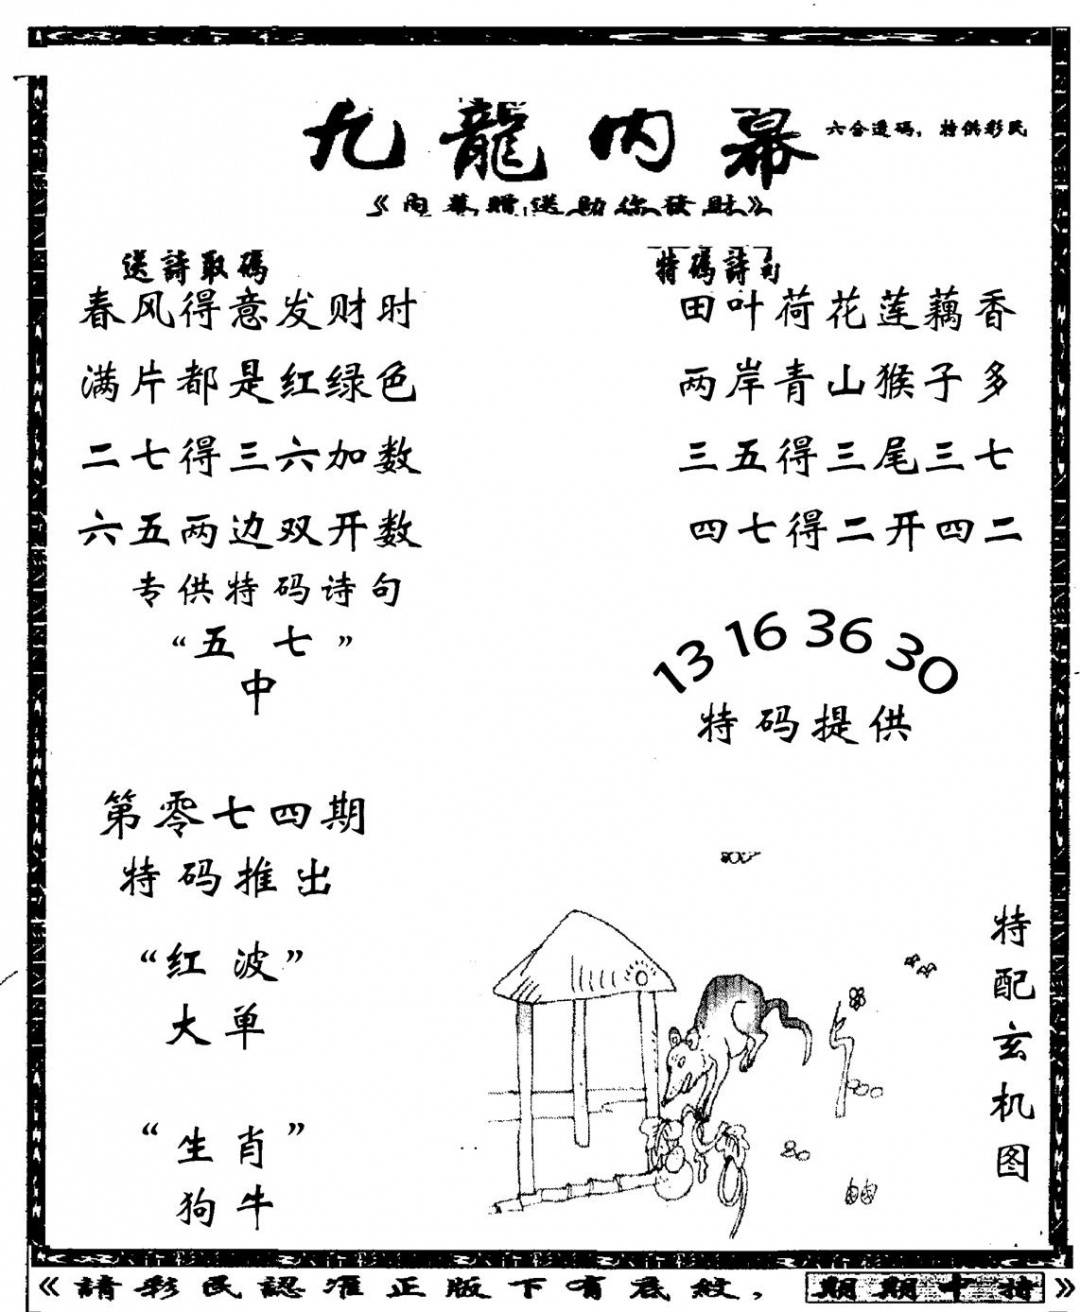 九龍内幕
六合透碼，特供彩民
《内幕赠送助你發財》
送詩取碼
春风得意发财时
满片都是红绿色
二七得三六加数
六五两边双开数
专供特码诗句
“五 七”
中
特碼詩句
田叶荷花莲藕香
两岸青山猴子多
三五得三尾三七
四七得二开四二
13 16 36 30
特码提供
第零七四期
特码推出
“红波”
大单
“生肖”
狗牛
特配玄机图
《請彩民認准正版下有底紋，期期中特》